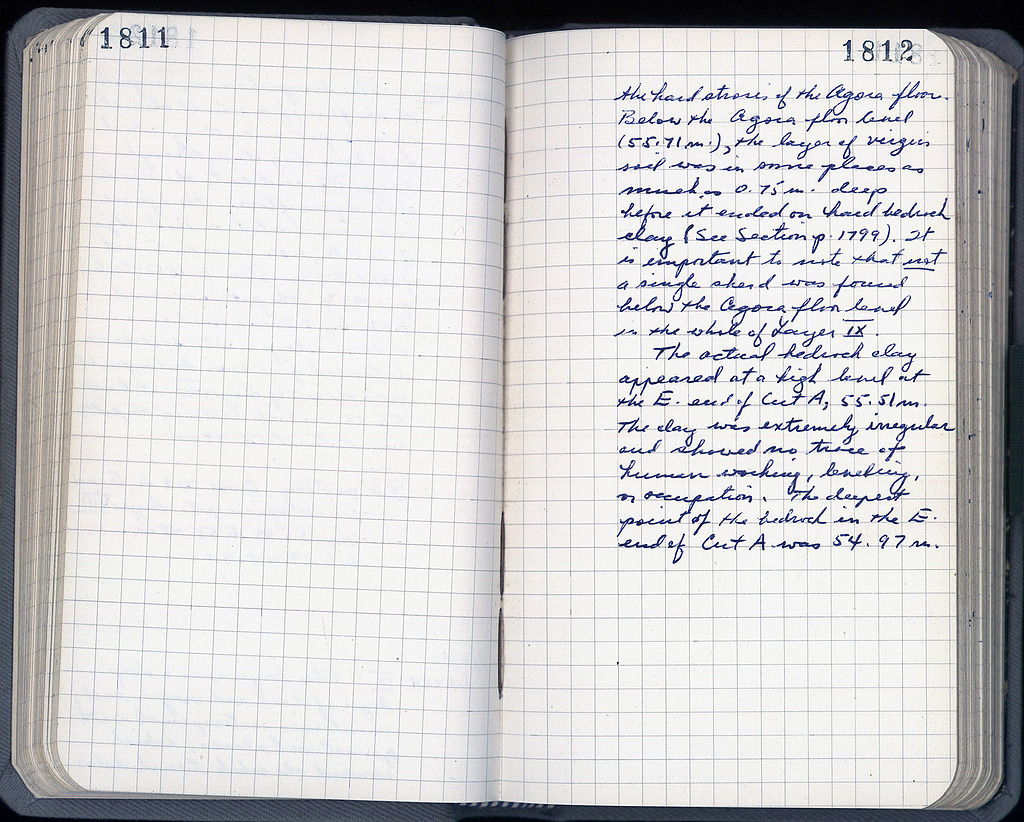 1811
1812
the hard stroses of the Agora floor.
Below the Agora floor level
(55.71 m.), the layer of virgin
soil was in some places as
much as 0.75 m. deep
before it ended on hard bedrock
clay (See Section p. 1799). It
is important to note that not
a single sherd was found
below the Agora floor level
in the whole of Layer IX.
The actual bedrock clay
appeared at a high level at
the E. end of Cut A, 55.51 m.
The clay was extremely irregular
and showed no trace of
human working, leveling,
or occupation. The deepest
point of the bedrock in the E.
end of Cut A was 54.97 m.